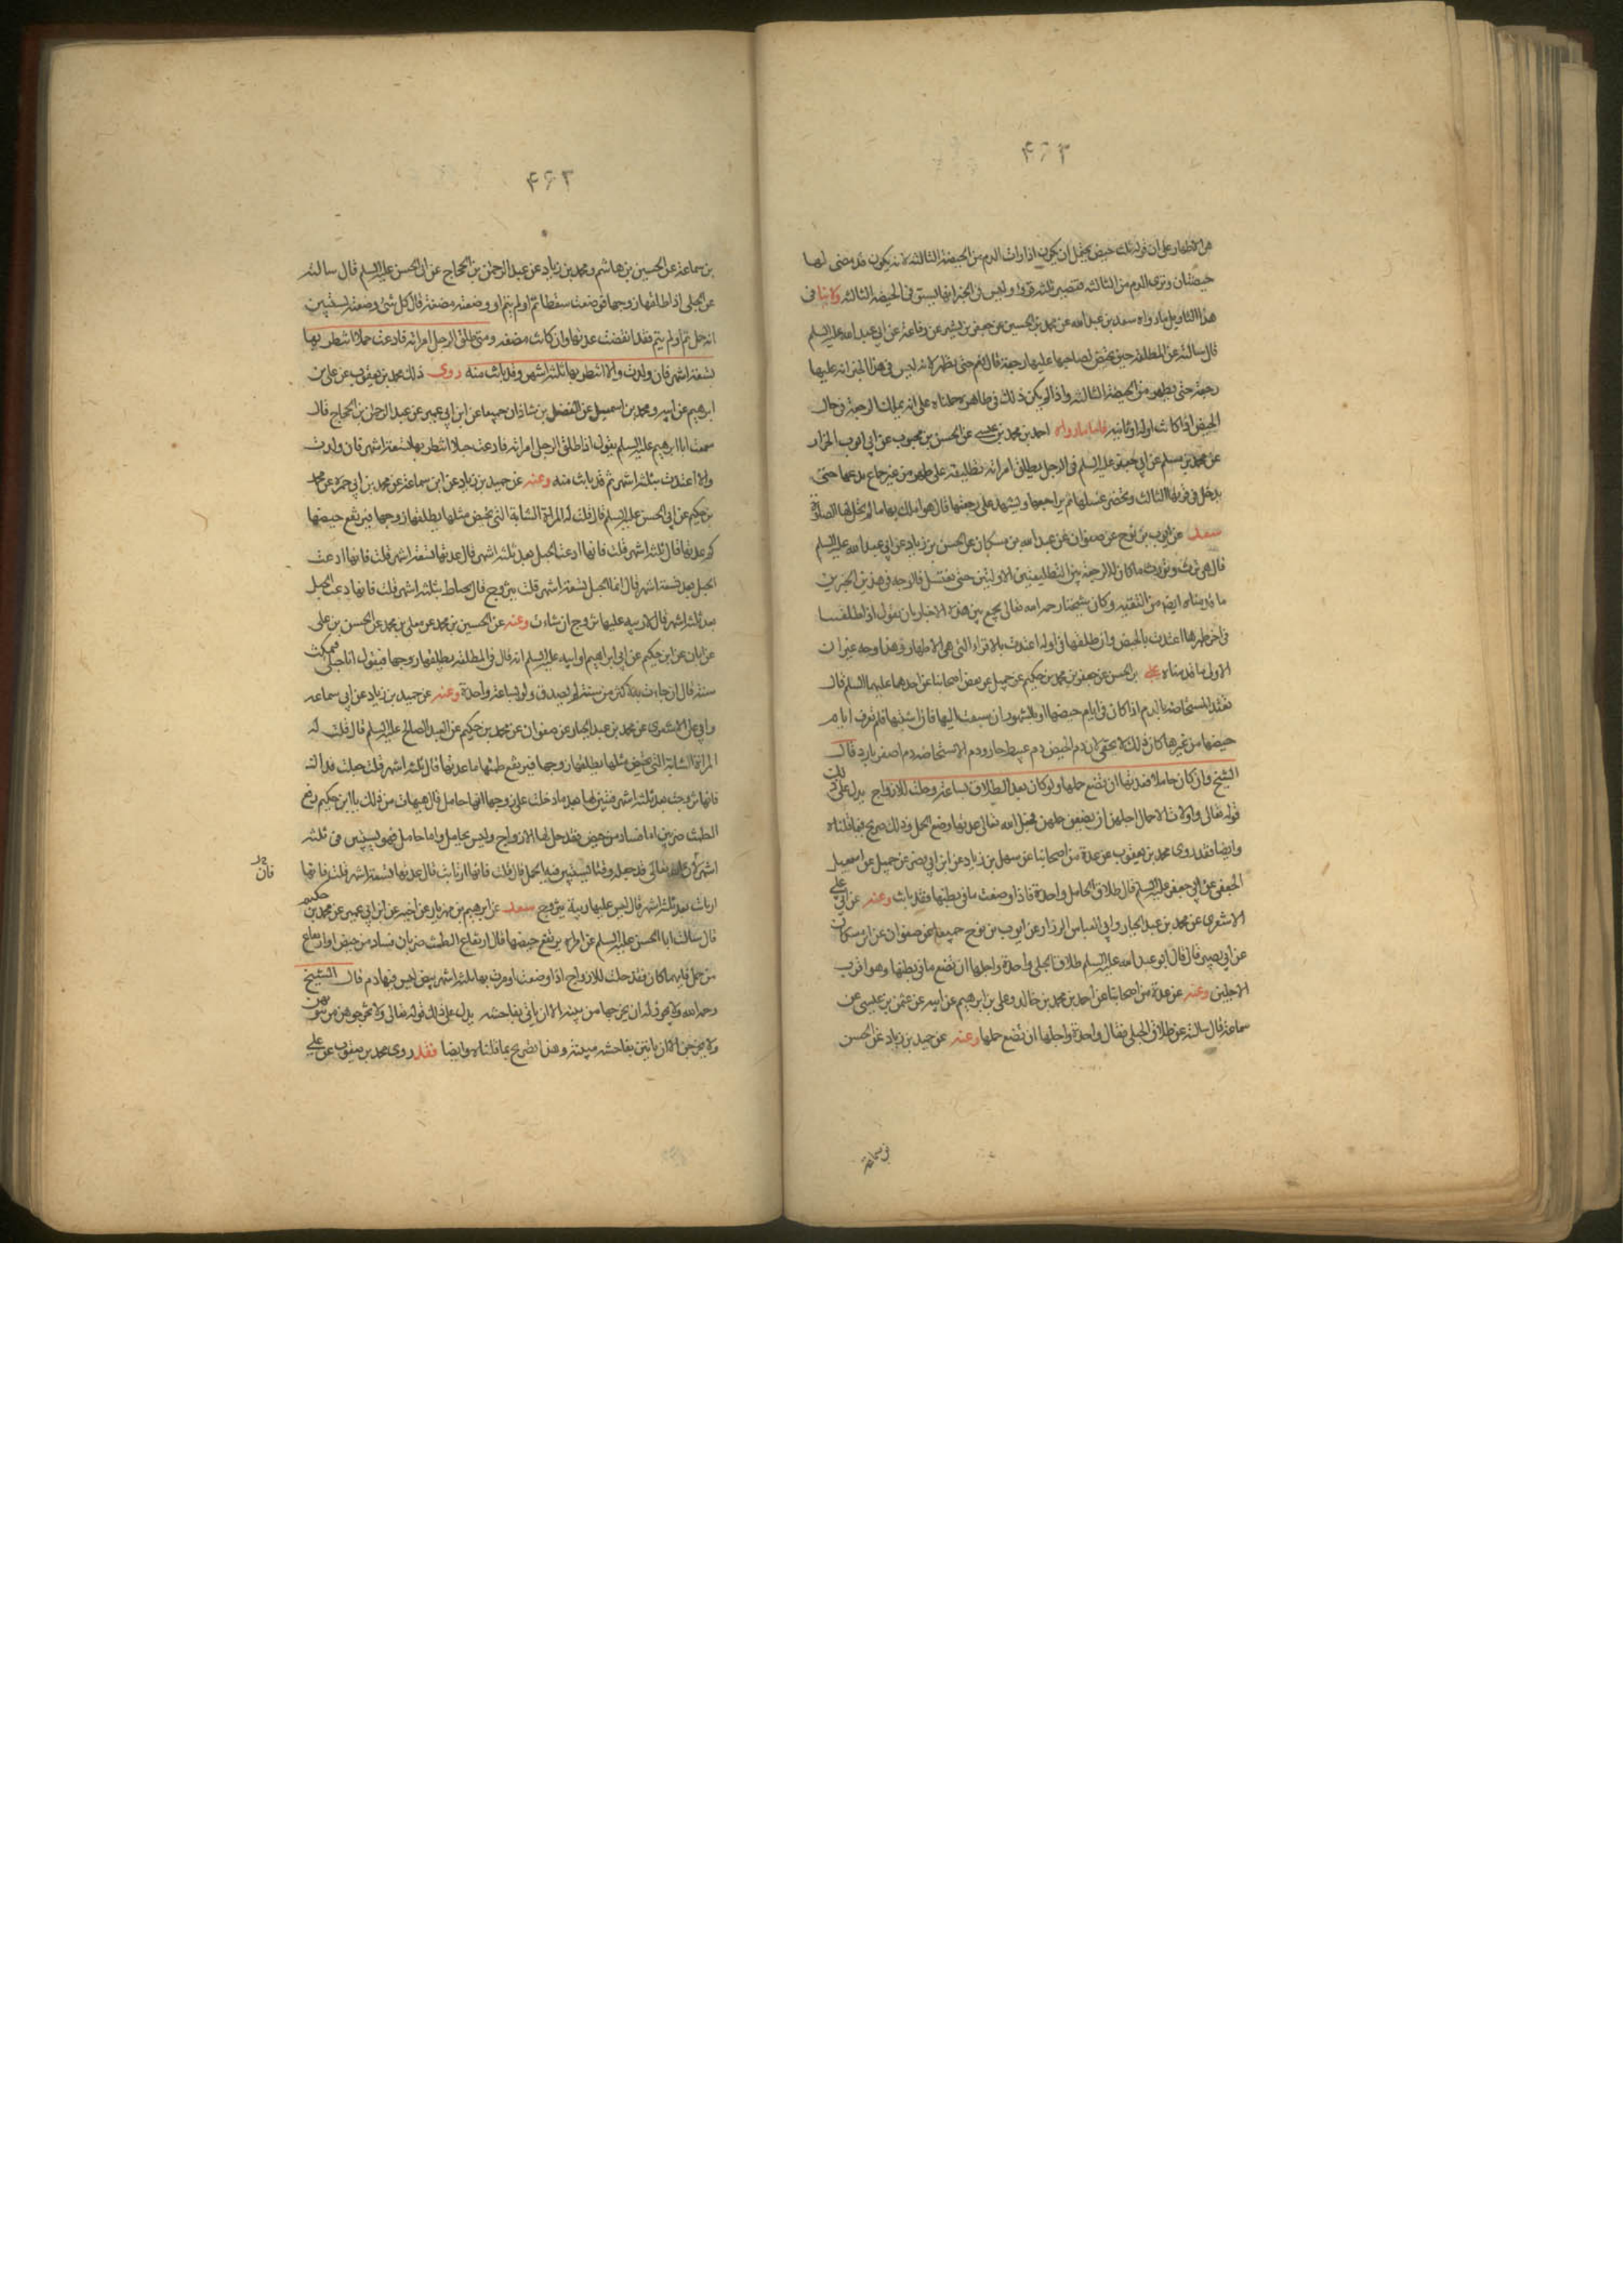 ٤٦٣
هي الاطهار على ان قوله ثلث حيض يحتمل ان يكون اذا رات الدم من الحيضة الثالثة لانه يكون قد مضى لها
حيضتان وترى الدم من الثالثة فتصير ثلثة قروء وليس في الخبر انها تستوفي الحيضة الثالثة ولا ينافي
هذا التاويل ما رواه سعد بن عبد الله عن محمد بن الحسين عن جعفر بن بشير عن رفاعة عن ابي عبد الله عليه السلم
قال سالته عن المطلقة حين تحيض لصاحبها عليها رجعة قال نعم حتى تطهر لانه ليس في هذا الخبر انه عليها
رجعة حتى تطهر من الحيضة الثالثة واذا لم يكن ذلك في ظاهره حملناه على انه يملك الرجعة في حال
الحيض اذا كانت اوله او ثانيه فاما ما رواه احمد بن محمد بن عيسى عن الحسن بن محبوب عن ابي ايوب الخزاز
عن محمد بن مسلم عن ابي جعفر عليه السلم في الرجل يطلق امراته تطليقة على طهر من غير جماع يدعها حتى
يدخل في قرئها الثالث ويحضر غسلها ثم يراجعها ويشهد على رجعتها قال هو املك بها ما لم تحل لها الصلوة
سعد عن ايوب بن نوح عن صفوان عن عبد الله بن مسكان عن الحسن بن زياد عن ابي عبد الله عليه السلم
قال هي ترث وتورث ما كان له الرجعة بين التطليقتين الاولتين حتى تغتسل فالوجه في هذين الخبرين
ما قدمناه ايضا من التقية وكان شيخنا رحمه الله تعالى يجمع بين هذه الاخبار بان يقول اذا طلقها
في اخر طهرها اعتدت بالحيض وان طلقها في اوله اعتدت بالاقراء التي هي الاطهار وهذا وجه غير ان
الاول ما قدمناه علي بن الحسن عن جعفر بن محمد بن حكيم عن جميل عن بعض اصحابنا عن احدهما عليهما السلم قال
تعتد المستحاضة بالدم اذا كان في ايام حيضها او بالشهور ان سبقت اليها فان اشتبه فلم تعرف ايام
حيضها من غيرها كان ذلك لا يخفى لان دم الحيض دم عبيط حار ودم الاستحاضة دم اصفر بارد قال
الشيخ وان كان حاملا فعدتها ان تضع حملها ولو كان بعد الطلاق بساعة وحلت للازواج يدل على ذلك
قوله تعالى واولات الاحمال اجلهن ان يضعن حملهن فجعل الله تعالى عدتها وضع الحمل وذلك صريح فيما قلناه
وايضا فقد روى محمد بن يعقوب عن عدة من اصحابنا عن سهل بن زياد عن ابن ابي نصر عن جميل عن اسمعيل
الجعفي عن ابي جعفر عليه السلم قال طلاق الحامل واحدة فاذا وضعت ما في بطنها فقد بانت وعنه عن ابي علي
الاشعري عن محمد بن عبد الجبار وابي العباس الرزاز عن ايوب بن نوح جميعا عن صفوان عن ابن مسكان
عن ابي بصير قال قال ابو عبد الله عليه السلم طلاق الحبلى واحدة واجلها ان تضع ما في بطنها وهو اقرب
الاجلين وعنه عن عدة من اصحابنا عن احمد بن محمد بن خالد وعلي بن ابرهيم عن ابيه عن عثمن بن عيسى عن
سماعة قال سالته عن طلاق الحبلى فقال واحدة واجلها ان تضع حملها وعنه عن حميد بن زياد عن الحسن
بن سماعة
٤٦٣
بن سماعة عن الحسين بن هاشم ومحمد بن زياد عن عبد الرحمن بن الحجاج عن ابي الحسن عليه السلم قال سالته
عن الحبلى اذا طلقها زوجها فوضعت سقطا تم او لم يتم او وضعته مضغة قال كل شئ وضعته يستبين
انه حمل تم او لم يتم فقد انقضت عدتها وان كانت مضغة ومتى طلق الرجل امراته فادعت حملا انتظر بها
تسعة اشهر فان ولدت والا انتظر بها ثلثة اشهر وقد بانت منه روى ذلك محمد بن يعقوب عن علي بن
ابرهيم عن ابيه ومحمد بن اسمعيل عن الفضل بن شاذان جميعا عن ابن ابي عمير عن عبد الرحمن بن الحجاج قال
سمعت ابا ابرهيم عليه السلم يقول اذا طلق الرجل امراته فادعت حبلا انتظر بها تسعة اشهر فان ولدت
والا اعتدت بثلثة اشهر ثم قد بانت منه وعنه عن حميد بن زياد عن ابن سماعة عن محمد بن ابي حمزة عن محمد
بن حكيم عن ابي الحسن عليه السلم قال قلت له المراة الشابة التي تحيض مثلها يطلقها زوجها فيرتفع حيضها
كم عدتها قال ثلثة اشهر قلت فانها ادعت الحبل بعد ثلثة اشهر قال عدتها تسعة اشهر قلت فانها ادعت
الحبل بعد تسعة اشهر قال انما الحبل تسعة اشهر قلت تتزوج قال تحتاط بثلثة اشهر قلت فانها ادعت الحبل
بعد ثلثة اشهر قال لا ريبة عليها تتزوج ان شاءت وعنه عن الحسين بن محمد عن معلى بن محمد عن الحسن بن علي
عن ابان عن ابن حكيم عن ابي ابراهيم او ابيه عليه السلم انه قال في المطلقة يطلقها زوجها فتقول انا حبلى فتمكث
سنة قال ان جاءت به لاكثر من سنة لم تصدق ولو بساعة واحدة وعنه عن حميد بن زياد عن ابي سماعة
وابي علي الاشعري عن محمد بن عبد الجبار عن صفوان عن محمد بن حكيم عن العبد الصالح عليه السلم قال قلت له
المراة الشابة التي تحيض مثلها يطلقها زوجها فيرتفع طمثها ما عدتها قال ثلثة اشهر قلت جعلت فداك
فانها تزوجت بعد ثلثة اشهر فتبين لها بعد ما دخلت على زوجها انها حامل قال هيهات من ذلك يا ابن حكيم رفع
الطمث ضربان اما فساد من حيض فقد حل لها الازواج وليس بحامل واما حامل فهو يستبين في ثلثة
اشهر لان الله تعالى قد جعله وقتا يستبين فيه الحمل قال قلت فانها ارتابت قال عدتها تسعة اشهر قلت فانها
ارتابت بعد تسعة اشهر قال ليس عليها ريبة تتزوج سعد عن ابرهيم بن مهزيار عن اخيه عن ابن ابي عمير عن محمد بن حكيم
قال سالت ابا الحسن عليه السلم عن امراة يرتفع حيضها قال ارتفاع الطمث ضربان فساد من حيض او ارتفاع
من حمل فايهما كان فقد حلت للازواج اذا وضعت او مرت بها ثلثة اشهر بيض ليس فيها دم قال الشيخ
رحمه الله ولا يجوز له ان يخرجها من بيته الا ان تاتي بفاحشة يدل على ذلك قوله تعالى ولا تخرجوهن من بيوتهن
ولا يخرجن الا ان ياتين بفاحشة مبينة وهذا تصريح بما قلناه وايضا فقد روى محمد بن يعقوب عن علي